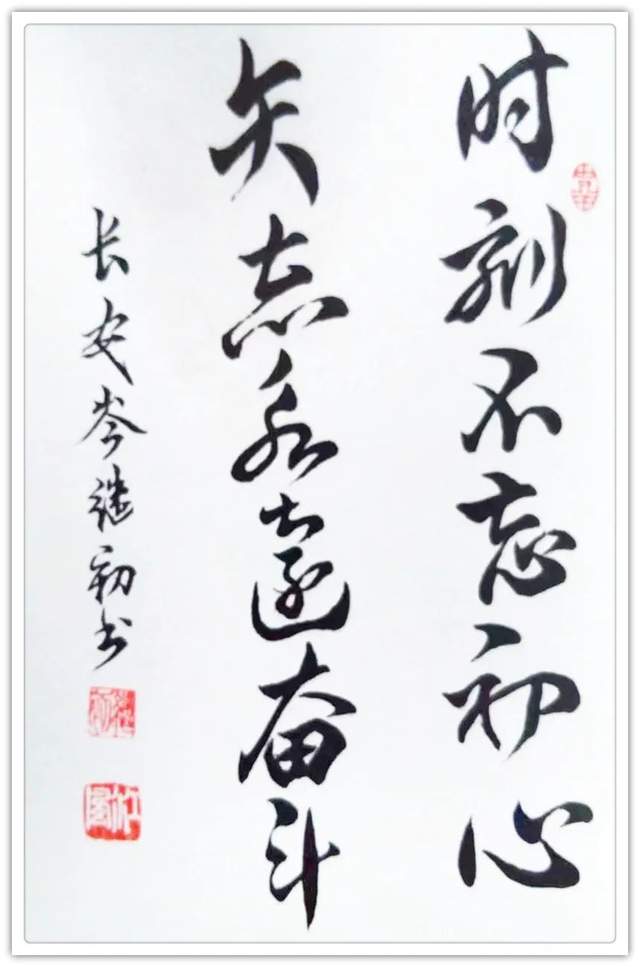 时刻不忘初心
矢志永远奋斗
长安岑继初书